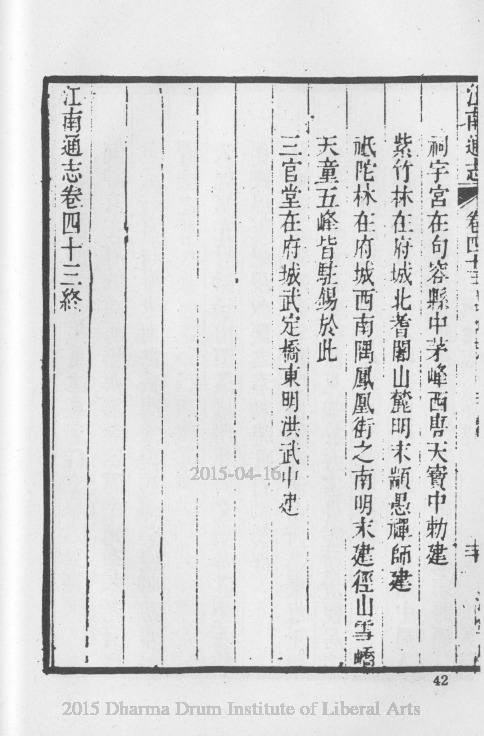 江南通志
卷四十三
祠宇宮在句容縣中茅峰西唐天寶中勅建
紫竹林在府城北耆闍山麓明末顓愚禪師建
祇陀林在府城西南隅鳳凰街之南明末建徑山雪嶠
天童五峰皆駐錫於此
三官堂在府城武定橋東明洪武中建
江南通志卷四十三終
2015-04-16
42
2015 Dharma Drum Institute of Liberal Arts